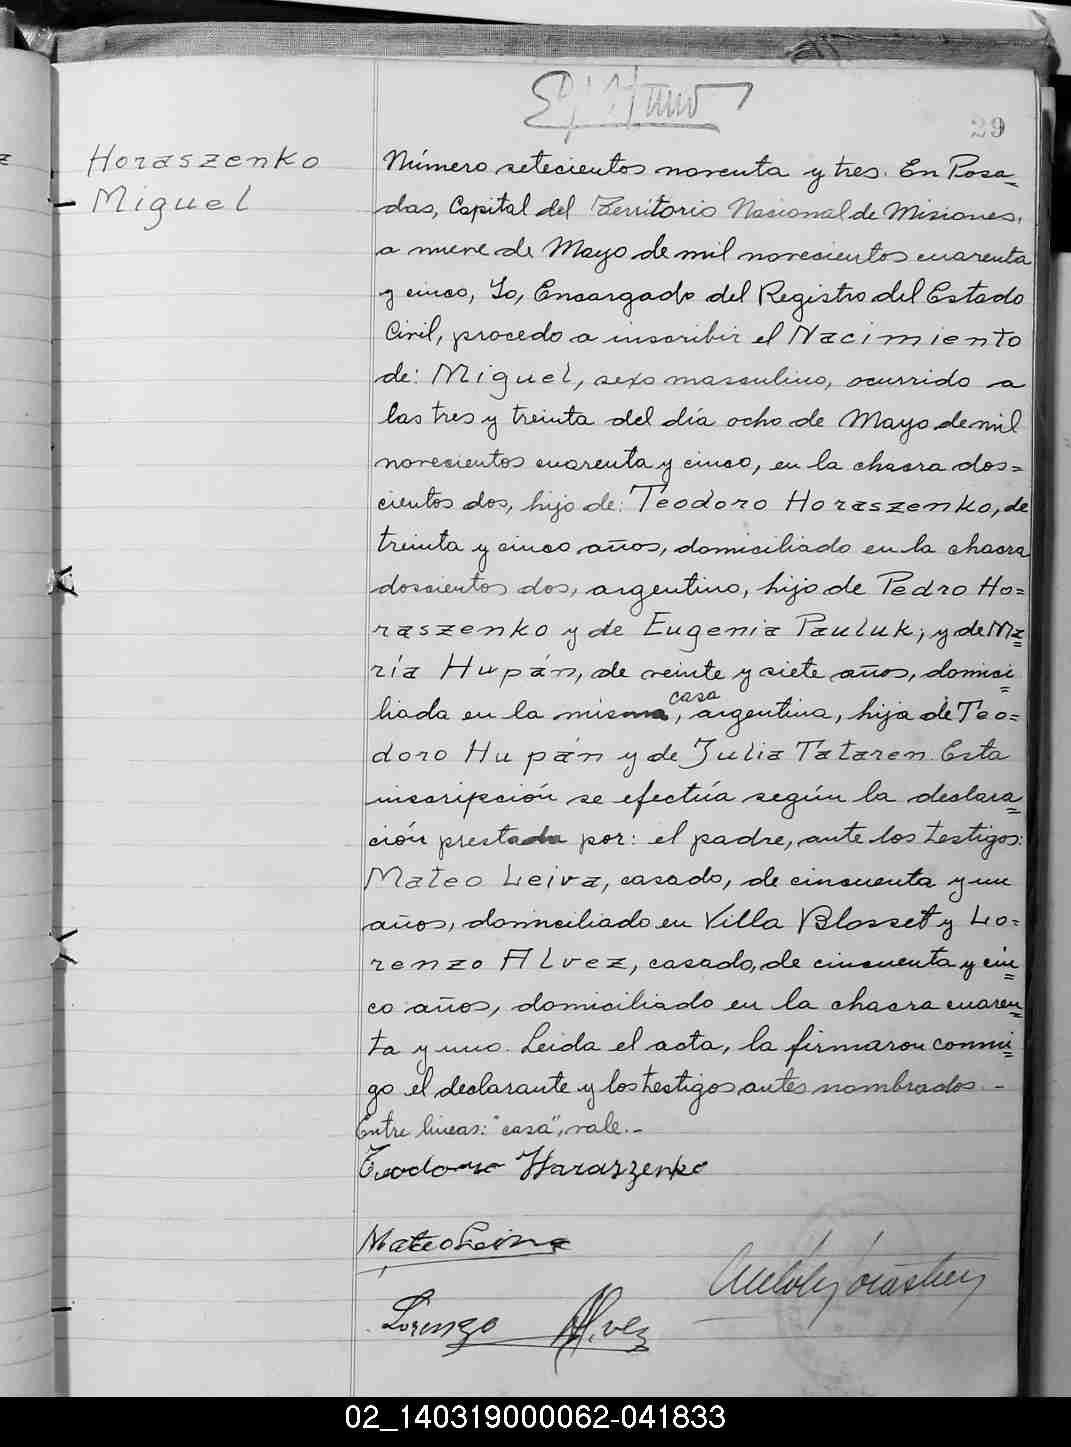 29
Horaszenko
Miguel
Número setecientos noventa y tres. En Posa-
das, Capital del Territorio Nacional de Misiones,
a nueve de Mayo de mil novecientos cuarenta
y cinco, Yo, Encargado del Registro del Estado
Civil, procedo a inscribir el Nacimiento
de: Miguel, sexo masculino, ocurrido a
las tres y treinta del día ocho de Mayo de mil
novecientos cuarenta y cinco, en la chacra dos=
cientos dos, hijo de: Teodoro Horaszenko, de
treinta y cinco años, domiciliado en la chacra
doscientos dos, argentino, hijo de Pedro Ho=
raszenko y de Eugenia Pauluk; y de Ma=
ría Hupán, de veinte y siete años, domici=
casa
liada en la misma, argentina, hija de Teo=
doro Hupán y de Julia Tataren. Esta
inscripción se efectúa según la declara=
ción prestada por: el padre, ante los testigos:
Mateo Leiva, casado, de cincuenta y un
años, domiciliado en Villa Blosset y Lo=
renzo Alvez, casado, de cincuenta y cin=
co años, domiciliado en la chacra cuaren=
ta y uno. Leida el acta, la firmaron conmi=
go el declarante y los testigos antes nombrados.-
Entre lineas: "casa", vale.-
Teodoro Haraszenko
Mateo Leiva
Lorenzo Alvez
02_140319000062-041833